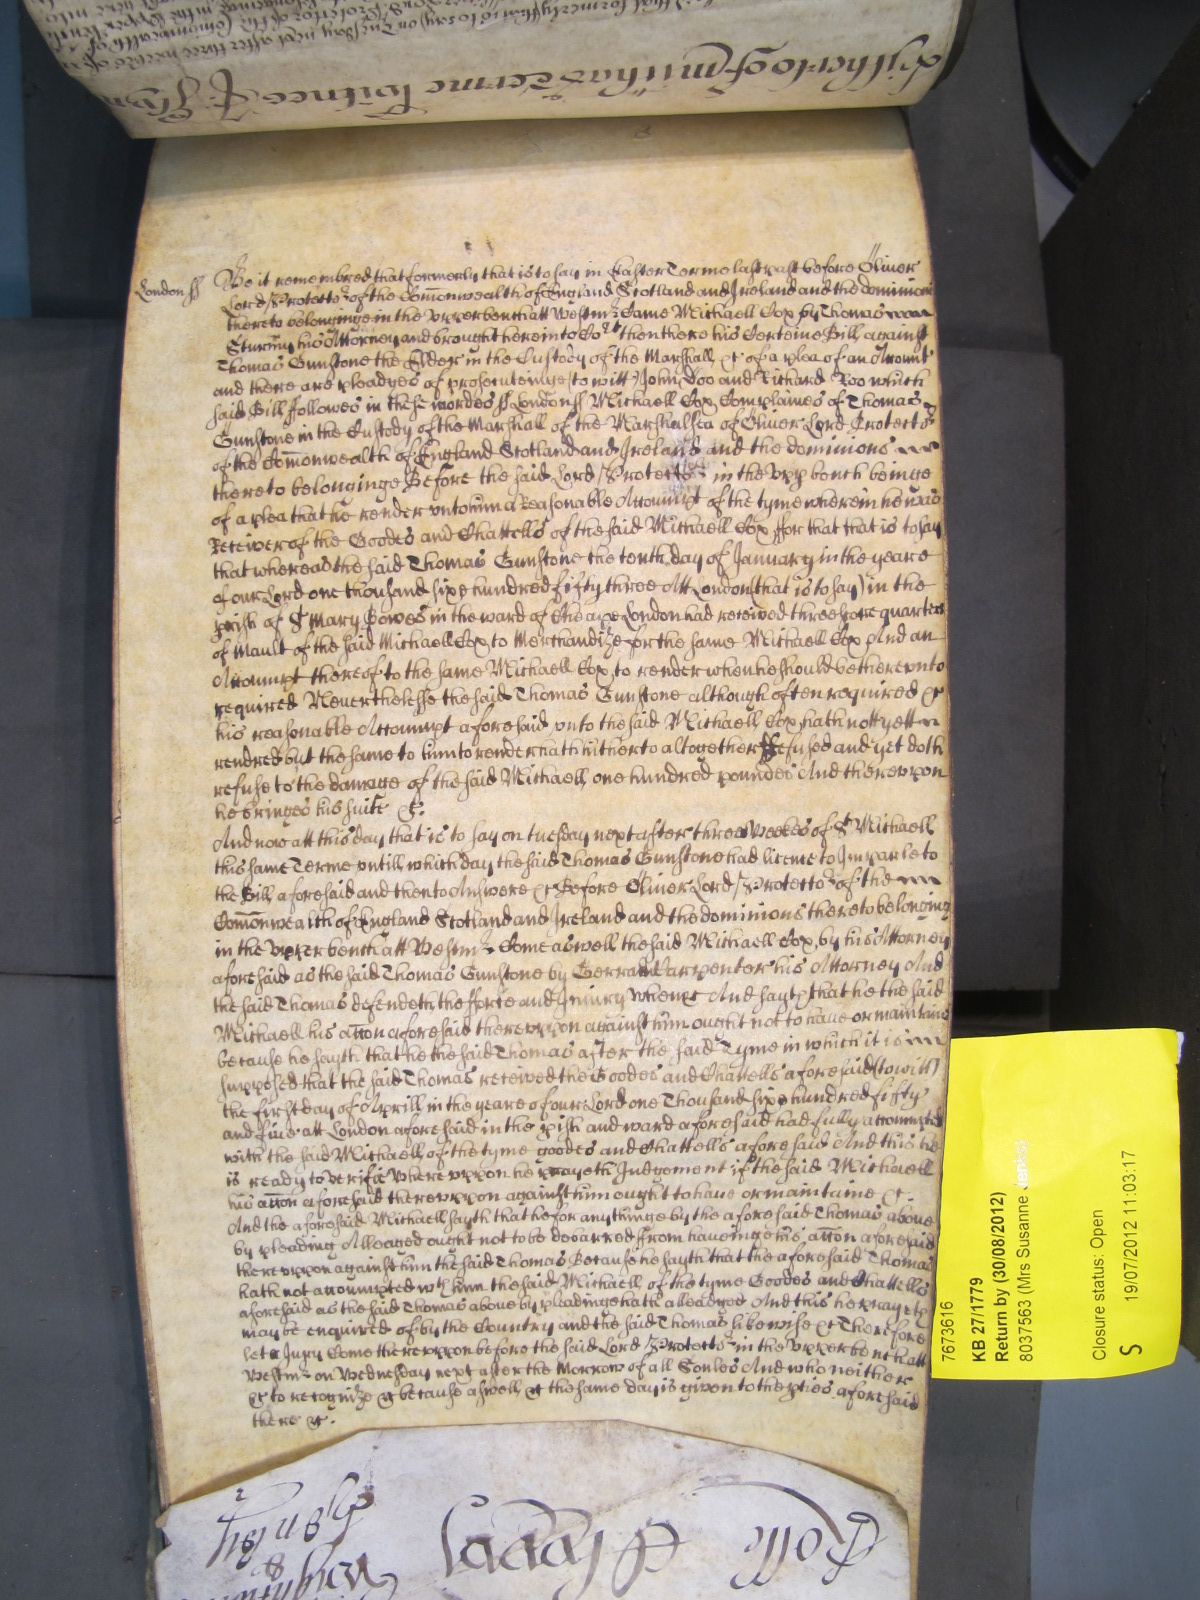 London ss Be it remembred that formerly that is to say in Easter Terme last past before Oliver
Lord Protector of the Comonwealth of England Scotland and Ireland and the dominions
thereto belonginge in the upper bench att Westmr Came Michaell Cox by Thomas
his Attorney and brought here into Cort then there his Certeine Bill against
Thomas Gunstone the Elder in the Custody of the Marshall &c of a plea of an Accompt
and there are pleadges of prosecuteinge (to witt) John Doo and Richard Roo which
said Bill followes in these wordes ss London ss Michaell Cox Complaines of Thomas
Gunstone in the Custody of the Marshall of the Marshalsea of Oliver Lord Protector
of the Comonwealth of England Scotland and Ireland and the dominions
thereto belonginge Before the said Lord Protector in the upp bench beinge
of a plea that he render unto him a Reasonable Accompt of the tyme wherein he was
Receiver of the Goodes and Chattells of the said Michaell Cox ffor that that is to say
that whereas the said Thomas Gunstone the tenth day of January in the yeare
of our Lord one thousand sixe hundred fifty three Att London (that is to say) in the
pish of St Mary Bowes in the ward of Cheape London had received threescore quarters
of Mault of the said Michaell Cox to Merchandize for the same Michaell Cox And an
Accompt thereof to the same Michaell Cox, to render when he should be thereunto
required Neverthelesse the said Thomas Gunstone although often required &c
his reasonable Accompt aforesaid unto the said Michaell Cox, hath nott yett
rendred but the same to him to render hath hitherto altogether refused and yet doth
refuse to the damage of the said Michaell one hundred poundes And thereuppon
he bringes his suite &c.
And now att this day that is to say on tuesday next after three Weekes of St Michaell
this same Terme untill which day the said Thomas Gunstone had licence to Imparle to
the Bill aforesaid and then to Answere &c Before Oliver Lord Protector of the
Comonwealth of England Scotland and Ireland and the dominions thereto belonging
in the upper bench att Westmr Come aswell the said Michaell Cox, by his Attorney
aforesaid as the said Thomas Gunstone by Gerrard Carpenter his Attorney And
the said Thomas defendeth the fforce and Iniury when &c And sayth that he the said
Michaell his accon aforesaid thereuppon against him ought not to have or maintaine
because he sayth that he the said Thomas after the said Tyme in which it is
supposed that the said Thomas received the Goodes and Chattells aforesaid (to witt)
the first day of Aprill in the yeare of our Lord one Thousand sixe hundred fifty
and five att London aforesaid in the pish and ward aforesaid had fully accompted
with the said Michaell, of the tyme goodes and Chattells aforesaid And this he
is ready to verifie Whereuppon he prayeth Judgement if the said Michaell
his accon aforesaid thereuppon against him ought to have or maintaine &c.
And the aforesaid Michaell sayth that he for any thinge by the aforesaid Thomas above
by pleading Alleaged ought not to be debarred from haveinge his accon aforesaid
thereuppon against him the said Thomas Because he sayth that the aforesaid Thomas
hath not accompted wth him the said Michaell of the tyme Goodes and Chattells
aforesaid as the said Thomas above by pleadinge hath alleadged And this he prayeth
may be enquired of by the Country and the said Thomas likewise &c Therefore
let a Jury Come thereuppon before the said Lord Protector in the upper bench att
Westmr on Wednesday next after the Morrow of all Soules And who neither
&c to recognize &c because aswell &c the same day is given to the pties aforesaid
there &c.
7673616
KB 27/1779
Return by (30/08/2012)
8037563 (Mrs Susanne
Closure status: Open
S 19/07/2012 11:03:17